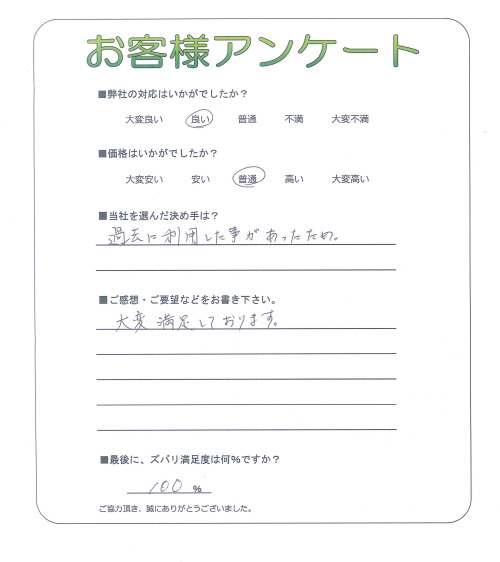 お客様アンケート
■弊社の対応はいかがでしたか？
大変良い 良い 普通 不満 大変不満
■価格はいかがでしたか？
大変安い 安い 普通 高い 大変高い
■当社を選んだ決め手は？
過去に利用した事があったため。
■ご感想・ご要望などをお書き下さい。
大変満足しております。
■最後に、ズバリ満足度は何％ですか？
100 ％
ご協力頂き、誠にありがとうございました。